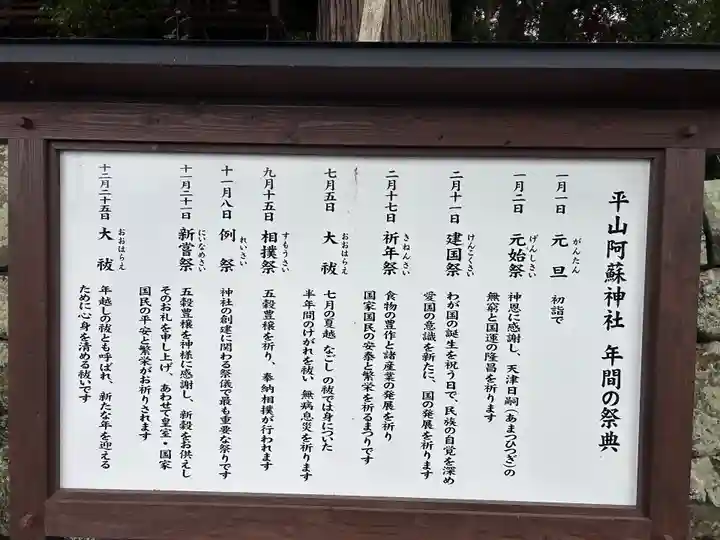 平山阿蘇神社 年間の祭典
一月一日 元旦 がんたん 初詣で
一月二日 元始祭 げんしさい 神恩に感謝し、天津日嗣(あまつひつぎ)の
無窮と国運の隆昌を祈ります
二月十一日 建国祭 けんこくさい わが国の誕生を祝う日で、民族の自覚を深め
愛国の意識を新たに、国の発展を祈ります
二月十七日 祈年祭 きねんさい 食物の豊作と諸産業の発展を祈り
国家国民の安泰と繁栄を祈るまつりです
七月五日 大祓 おおはらえ 七月の夏越 なごし の祓では身についた
半年間のけがれを祓い 無病息災を祈ります
九月十五日 相撲祭 すもうさい 五穀豊穣を祈り、奉納相撲が行われます
十一月八日 例祭 れいさい 神社の創建に関わる祭儀で最も重要な祭りです
十一月二十一日 新嘗祭 にいなめさい 五穀豊穣を神様に感謝し、新穀をお供えし
そのお礼を申し上げ、あわせて皇室・国家
国民の平安と繁栄がお祈りされます
十二月二十五日 大祓 おおはらえ 年越しの祓とも呼ばれ、新たな年を迎える
ために心身を清める祓いです